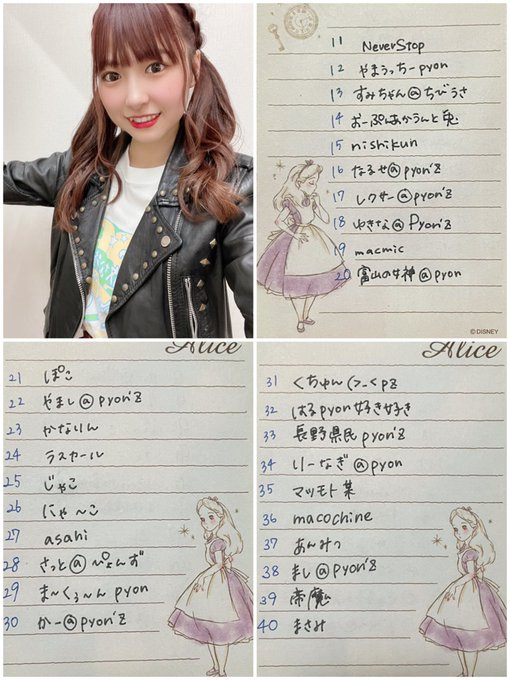 11 NeverStop
12 やまうっちーpyon
13 すみちゃん@ちびうさ
14 おーぷんあかうんと兎
15 nishikun
16 なるせ@pyon'z
17 レクサー@pyon'z
18 ゆきな@Pyon'z
19 macmic
20 富山の女神@pyon
©DISNEY
Alice
21 ぽこ
22 やまし@pyon'z
23 かなりん
24 ラスカール
25 じゃこ
26 にゃ〜こ
27 asahi
28 さっと@ぴょんず
29 ま〜くぅ〜ん pyon
30 かー@pyon'z
Alice
31 くちゅん(>_<pz
32 はるpyon好き好き
33 長野県民pyon'z
34 りーなぎ@pyon
35 マツモト某
36 macochine
37 あんみつ
38 まし@pyon'z
39 帝魔
40 まさみ